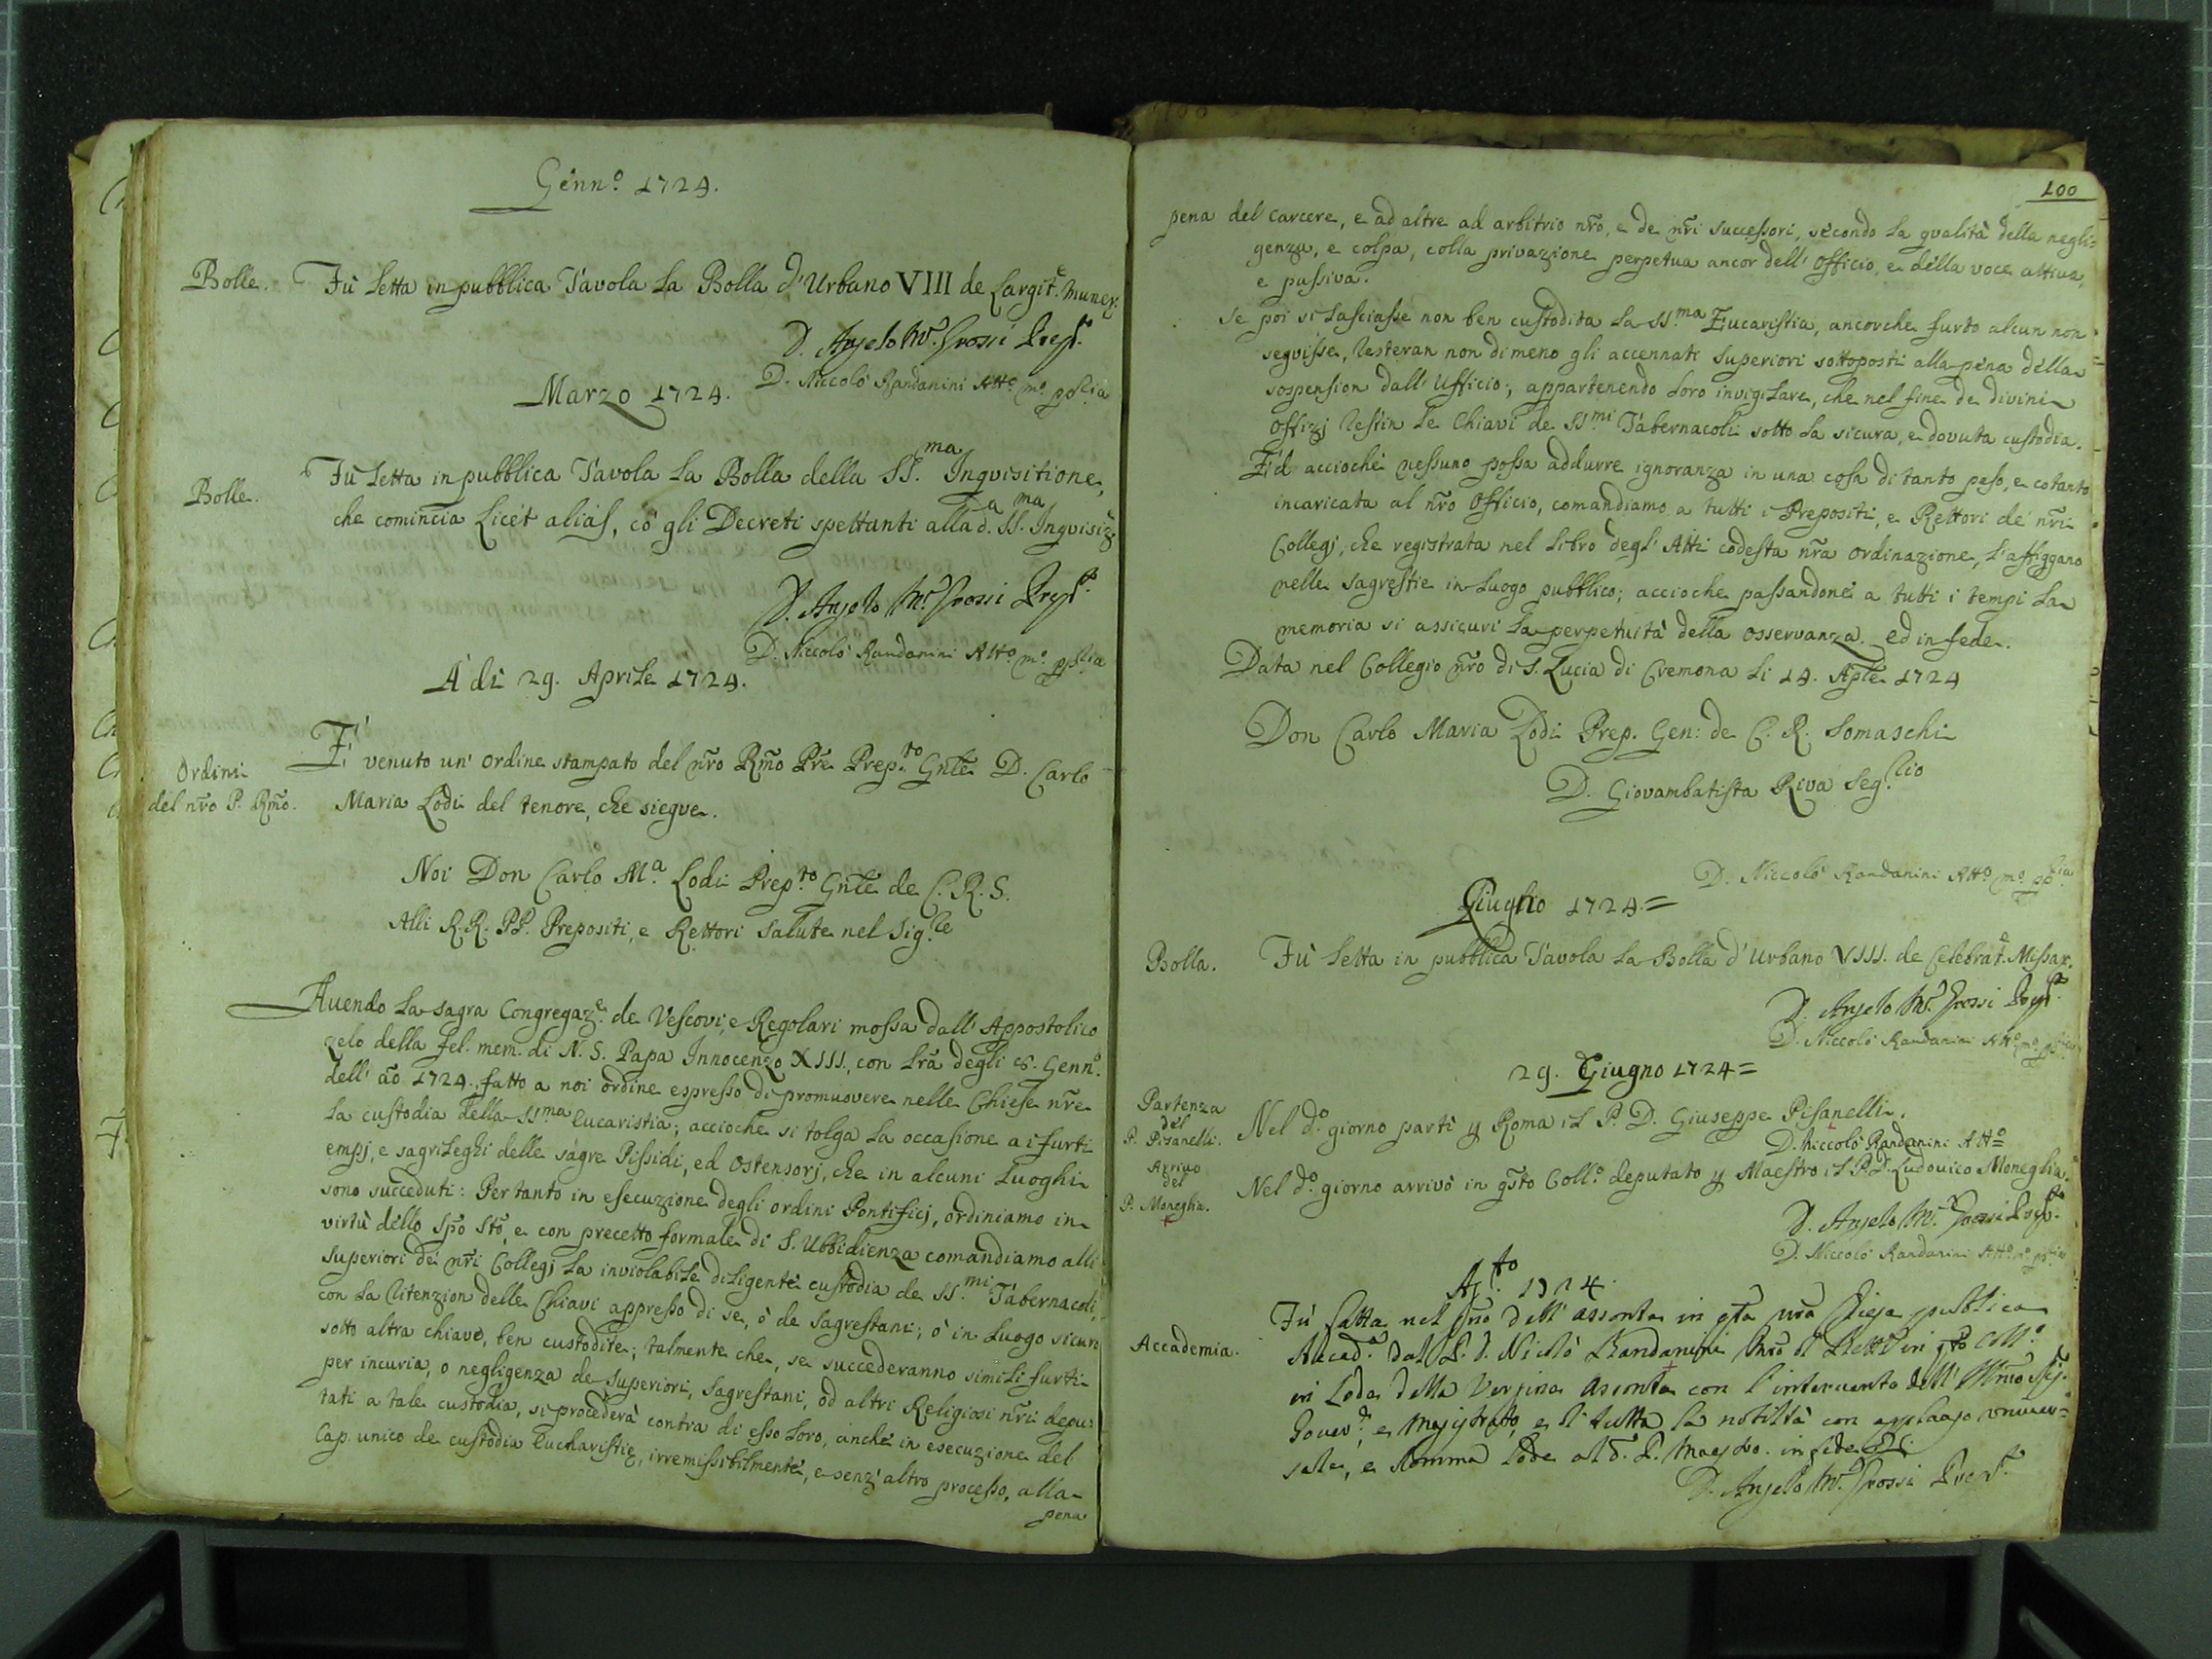 Genn.º 1724.
Bolle. Fù letta in pubblica Tavola la Bolla d'Urbano VIII de Largit.e muner.
D. Angelo M.ª Grossi Prep.to
D. Niccolò Randanini Att.º m.º pp.lia
Marzo 1724.
Bolle. Fù letta in pubblica Tavola la Bolla della SS.ma Inquisitione,
che comincia Licèt aliàs, cõ gli Decreti spettanti alla d.a SS.ma Inquisiz.
D. Angelo M.ª Grossi Prep.to
D. Niccolò Randanini Att.º m.º pp.lia
A dì 29. Aprile 1724.
Ordini del nr̃o P. Rmõ. E' venuto un' ordine stampato del nr̃o Rmõ Prẽ Prep.to Gnl̃e D. Carlo
Maria Lodi del tenore, che siegue.
Noi Don Carlo M.a Lodi Prep.to Gnl̃e de C. R. S.
Alli R.R. PP. Prepositi, e Rettori Salute nel Sig.re
Auendo la sagra Congregaz.e de Vescovi, e Regolari mossa dall' Appostolico
zelo della fel. mem. di N. S. Papa Innocenzo XIII, con lrã degli 8. Genn.º
dell' ãõ 1724, fatto a noi ordine espresso di promuovere nelle Chiese nr̃e
la custodia della SS.ma Eucaristia; accioche si tolga la occasione a i furti
empj, e sagrileghi delle sagre Pissidi, ed Ostensorj, che in alcuni Luoghi
sono succeduti: Per tanto in esecuzione degli ordini Pontificj, ordiniamo in
virtù dello Spõ Stõ, e con precetto formale di S. Ubbidienza comandiamo alli
Superiori de' nr̃i Collegj la inviolabile diligente custodia de SS.mi Tabernacoli,
con la ritenzion delle Chiavi appresso di se, ò de Sagrestani; ò in Luogo sicuro
sotto altra chiave, ben custodite; talmente che, se succederanno simili furti
per incuria, o negligenza de Superiori, Sagrestani, od altri Religiosi nr̃i depu:
tati a tale custodia, si procederà contra di esso loro, anche in esecuzione del
Cap. unico de custodia Eucharistię, irremissibilmente, e senz' altro processo, alla
pena
100
pena del carcere, e ad altre ad arbitrio nr̃o, e de nr̃i successori, secondo la qualità della negli=
genza, e colpa, colla privazione perpetua ancor dell' Officio, e della voce attiua,
e passiva.
Se poi si lasciasse non ben custodita la SS.ma Eucaristia, ancorche furto alcun non
seguisse, resteran non di meno gli accennati Superiori sottoposti alla pena della
sospension dall' Ufficio; appartenendo loro invigilare, che nel fine de divini
Offizj restin le Chiavi de SS.mi Tabernacoli sotto la sicura, e dovuta custodia.
Ed accioche nessuno possa addurre ignoranza in una cosa di tanto peso, e cotanto
incaricata al nr̃o Officio, comandiamo a tutti i Prepositi, e Rettori de' nr̃i
Collegj, che registrata nel Libro degl' Atti codesta nr̃a ordinazione, l'affiggano
nelle sagrestie in Luogo pubblico; accioche passandone a tutti i tempi la
memoria si assicuri la perpetuità della osservanza. ed in fede.
Data nel Collegio nr̃o di S. Lucia di Cremona li 14. Aple 1724
Don Carlo Maria Lodi Prep. Gen: de C. R. Somaschi
D. Giovambatista Riva Seg.rio
D. Niccolò Randanini Att.º m.º pp.lia
Giuglio 1724.=
Bolla. Fù letta in pubblica Tavola la Bolla d'Urbano VIII. de Celebrat.e Missar.
D. Angelo M.ª Grossi Prep.to
D. Niccolò Randanini Att.º m.º pp.lia
29. Giugno 1724=
Partenza del P. Pisanelli. Nel d.º giorno partì ꝑ Roma il P. D. Giuseppe Pisanelli.
D. Niccolò Randanini Att.º=
Arriuo del P. Moneglia. Nel d.º giorno arrivò in qs̃to Coll.º deputato ꝑ Maestro il P. D. Ludouico Moneglia.
D. Angelo M.ª Grossi Prep.to
D. Niccolò Randanini Att.º m.º pp.lia
Ag.to 1724.
Accademia. Fù fatta nel gñо dell' assonta in qs̃ta nr̃a Chiesa pubblica
Accad.ª dal P. D. Nicolò Randanini Mrõ di Rett.ª in qs̃to Coll.º
in lode della Vergine Assonta con l'interuento dell' Illmo Sig.
Gouer.re, e Magistrato, e di tutta la nobiltà con applauso vniuer=
sale, e somma lode al d.º P. Maestro. in fede
D. Angelo M.ª Grossi Prep.to